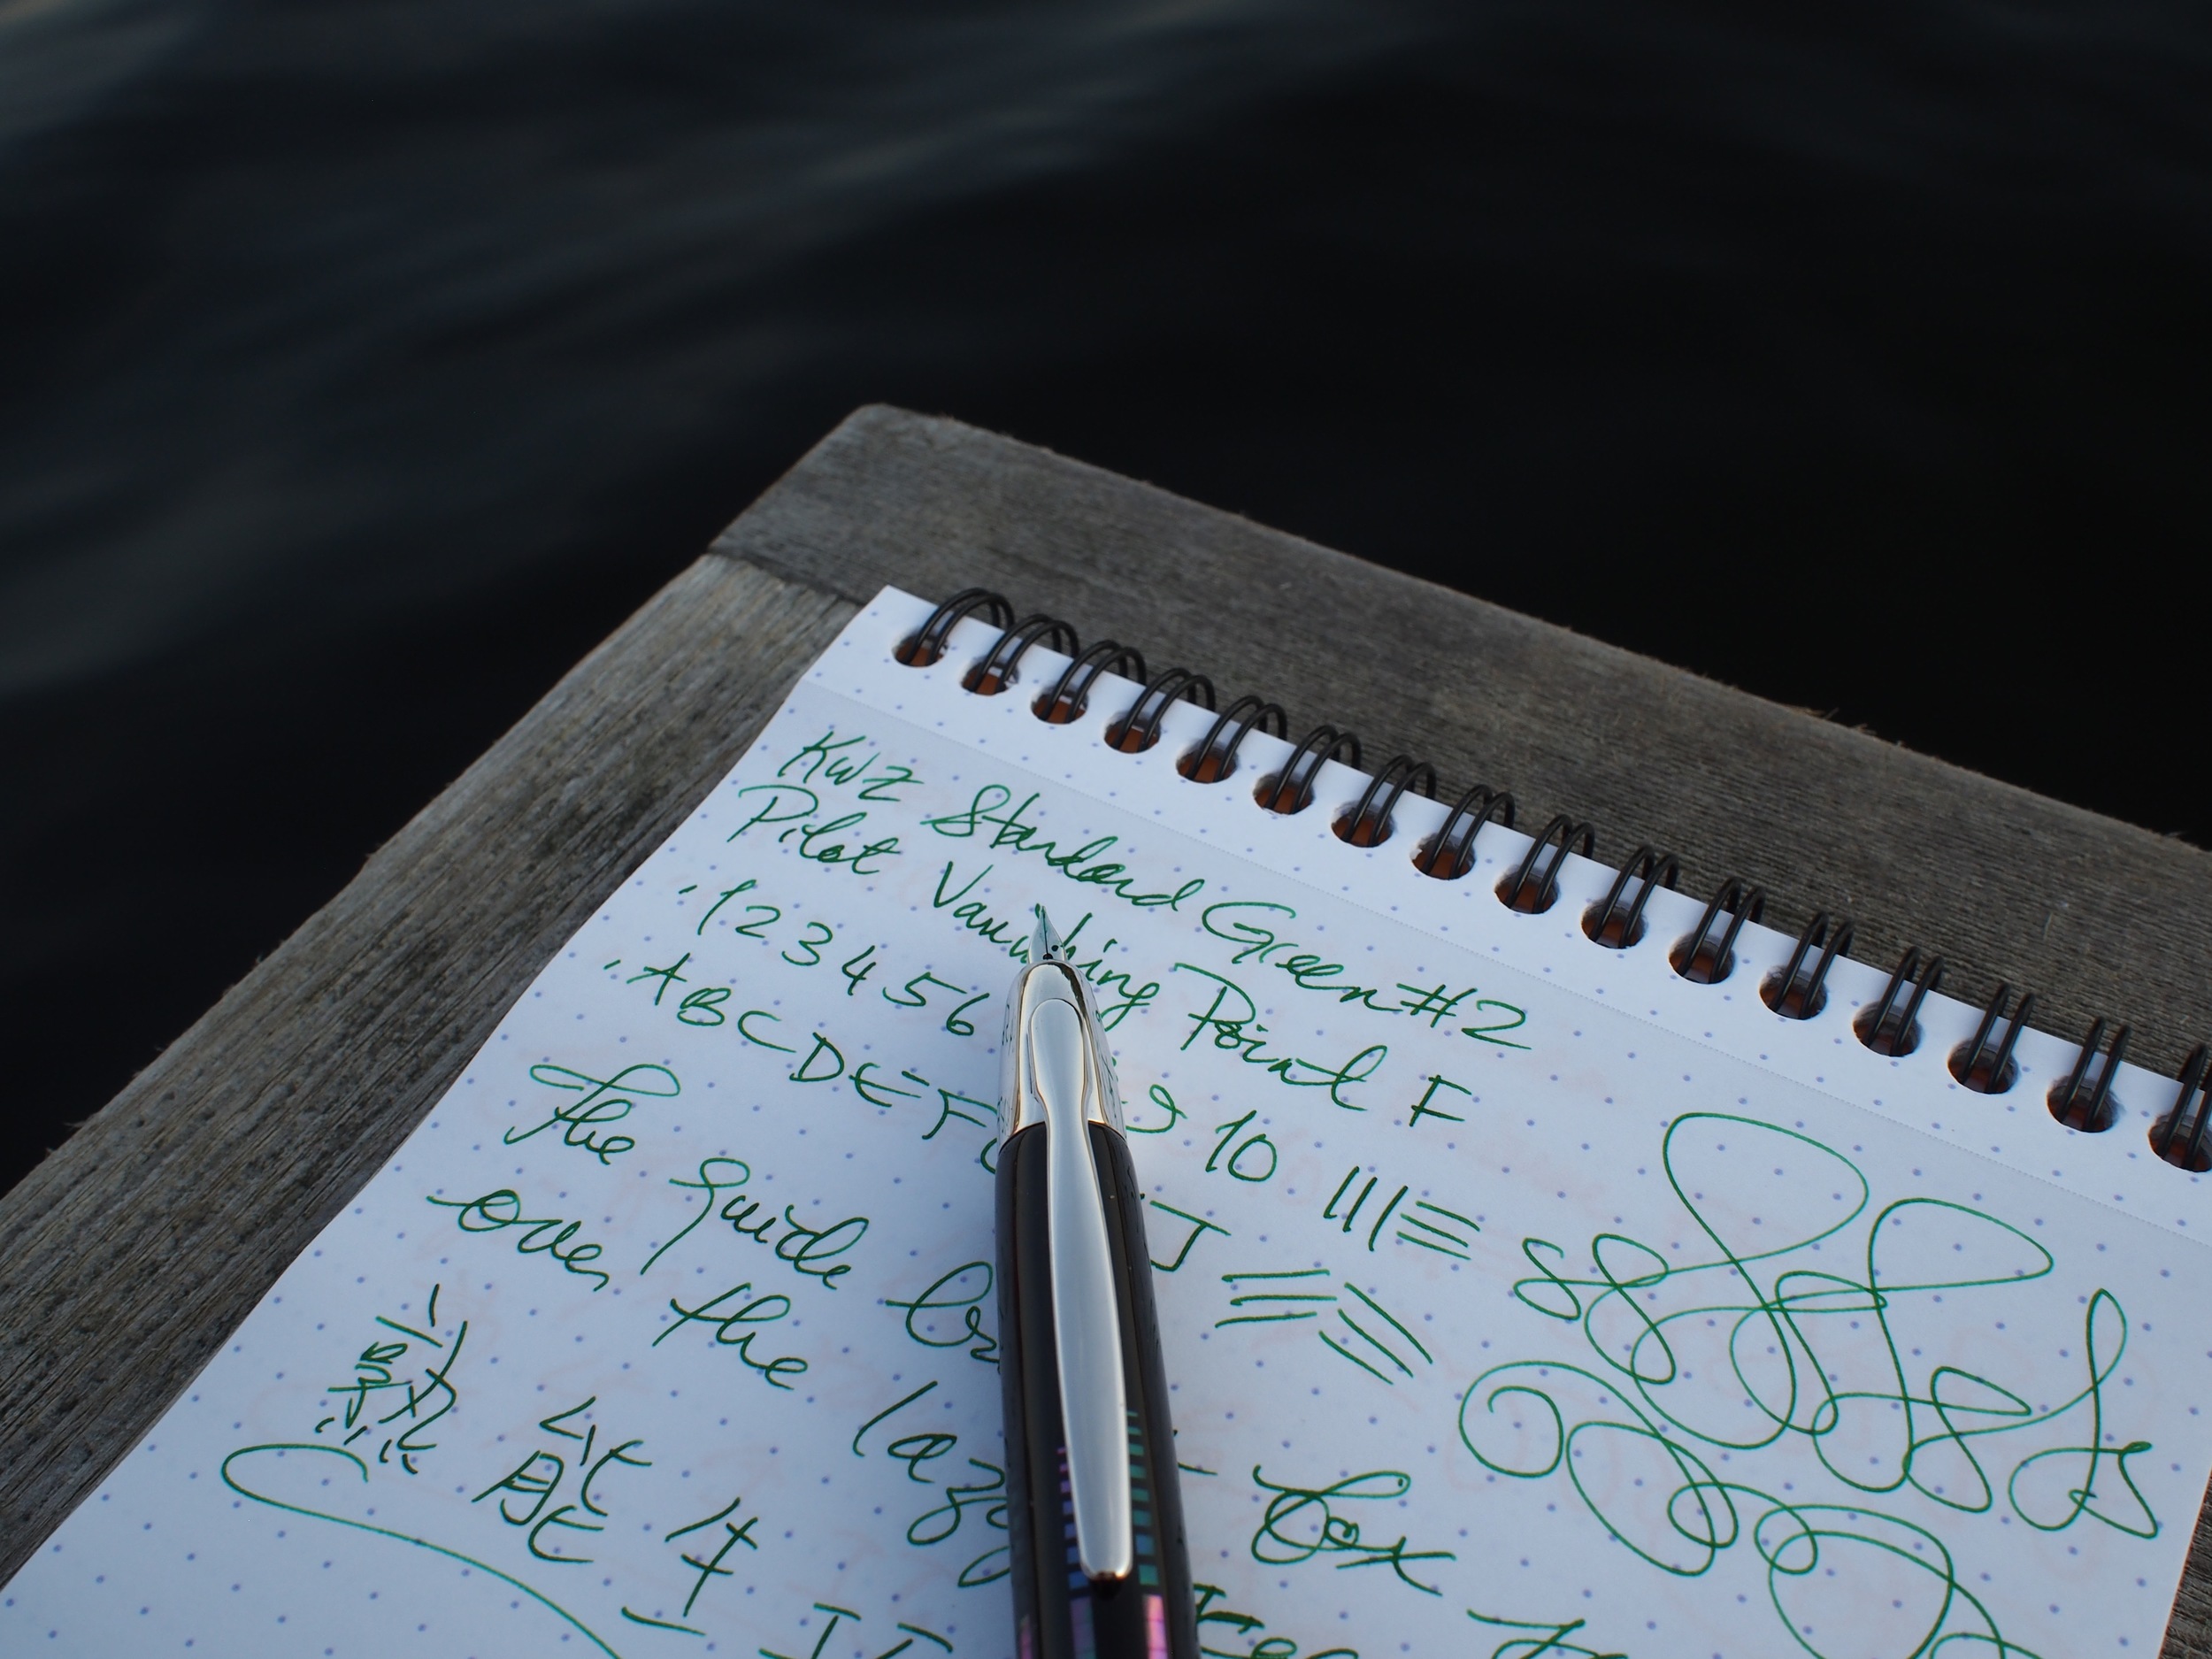 KWZ Standard Green #2
Pilot Vanishing Point F
1 2 3 4 5 6 9 10
A B C D E F J
The quick fox
over the lazy
熟能生